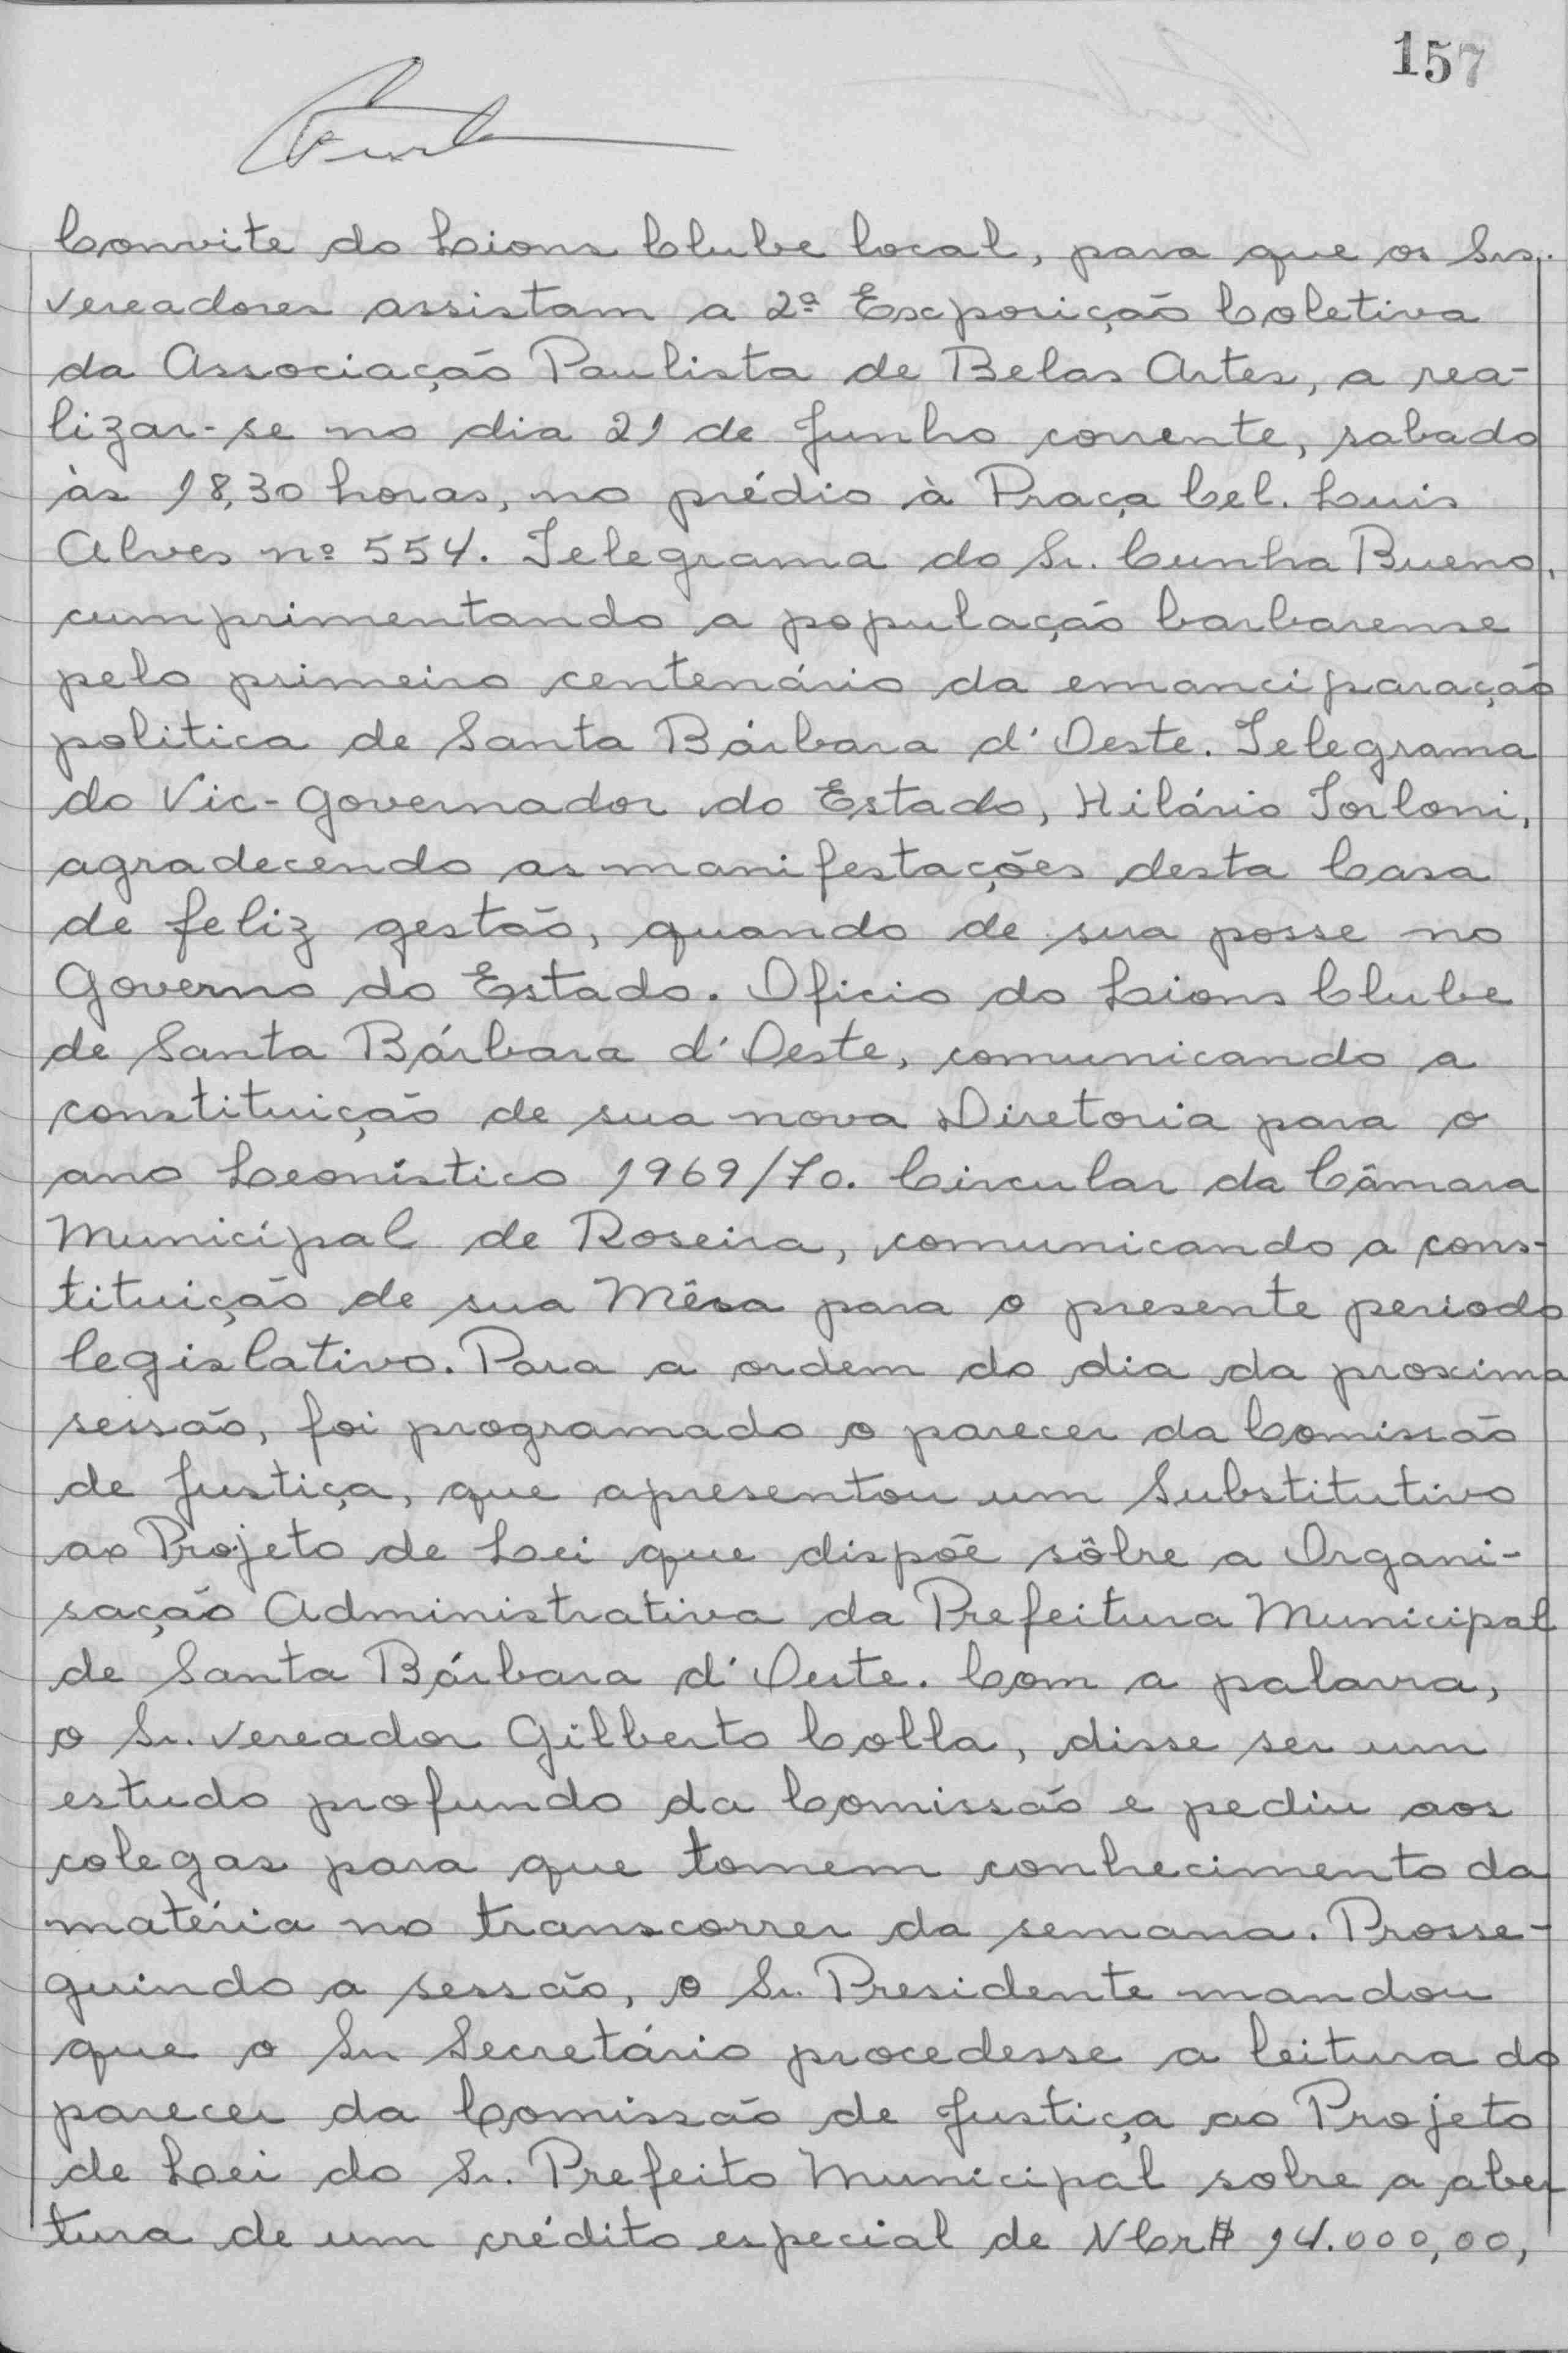 157
Convite do Lions Clube local, para que os Srs.
vereadores assistam a 2ª Exposição Coletiva
da Associação Paulista de Belas Artes, a rea-
lizar-se no dia 21 de Junho corrente, sabado
às 18,30 horas, no prédio à Praça Cel. Luis
Alves nº 554. Telegrama do Sr. Cunha Bueno,
cumprimentando a população barbarense
pelo primeiro centenário da emanciparação
politica de Santa Bárbara d'Oeste. Telegrama
do Vic-Governador do Estado, Hilário Torloni,
agradecendo as manifestações desta Casa
de feliz gestão, quando de sua posse no
Governo do Estado. Oficio do Lions Clube
de Santa Bárbara d'Oeste, comunicando a
constituição de sua nova Diretoria para o
ano Leonístico 1969/70. Circular da Câmara
Municipal de Roseira, comunicando a cons-
tituição de sua Mêsa para o presente periodo
legislativo. Para a ordem do dia da proxima
sessão, foi programado o parecer da Comissão
de Justiça, que apresentou um Substitutivo
ao Projeto de Lei que dispõe sôbre a Organi-
sação Administrativa da Prefeitura Municipal
de Santa Bárbara d'Oeste. Com a palavra,
o Sr. vereador Gilberto Colla, disse ser um
estudo profundo da Comissão e pediu aos
colegas para que tomem conhecimento da
matéria no transcorrer da semana. Prosse-
guindo a sessão, o Sr. Presidente mandou
que o Sr Secretário procedesse a leitura do
parecer da Comissão de Justiça ao Projeto
de Lei do Sr. Prefeito Municipal sobre a aber
tura de um crédito especial de NCr$ 14.000,00,